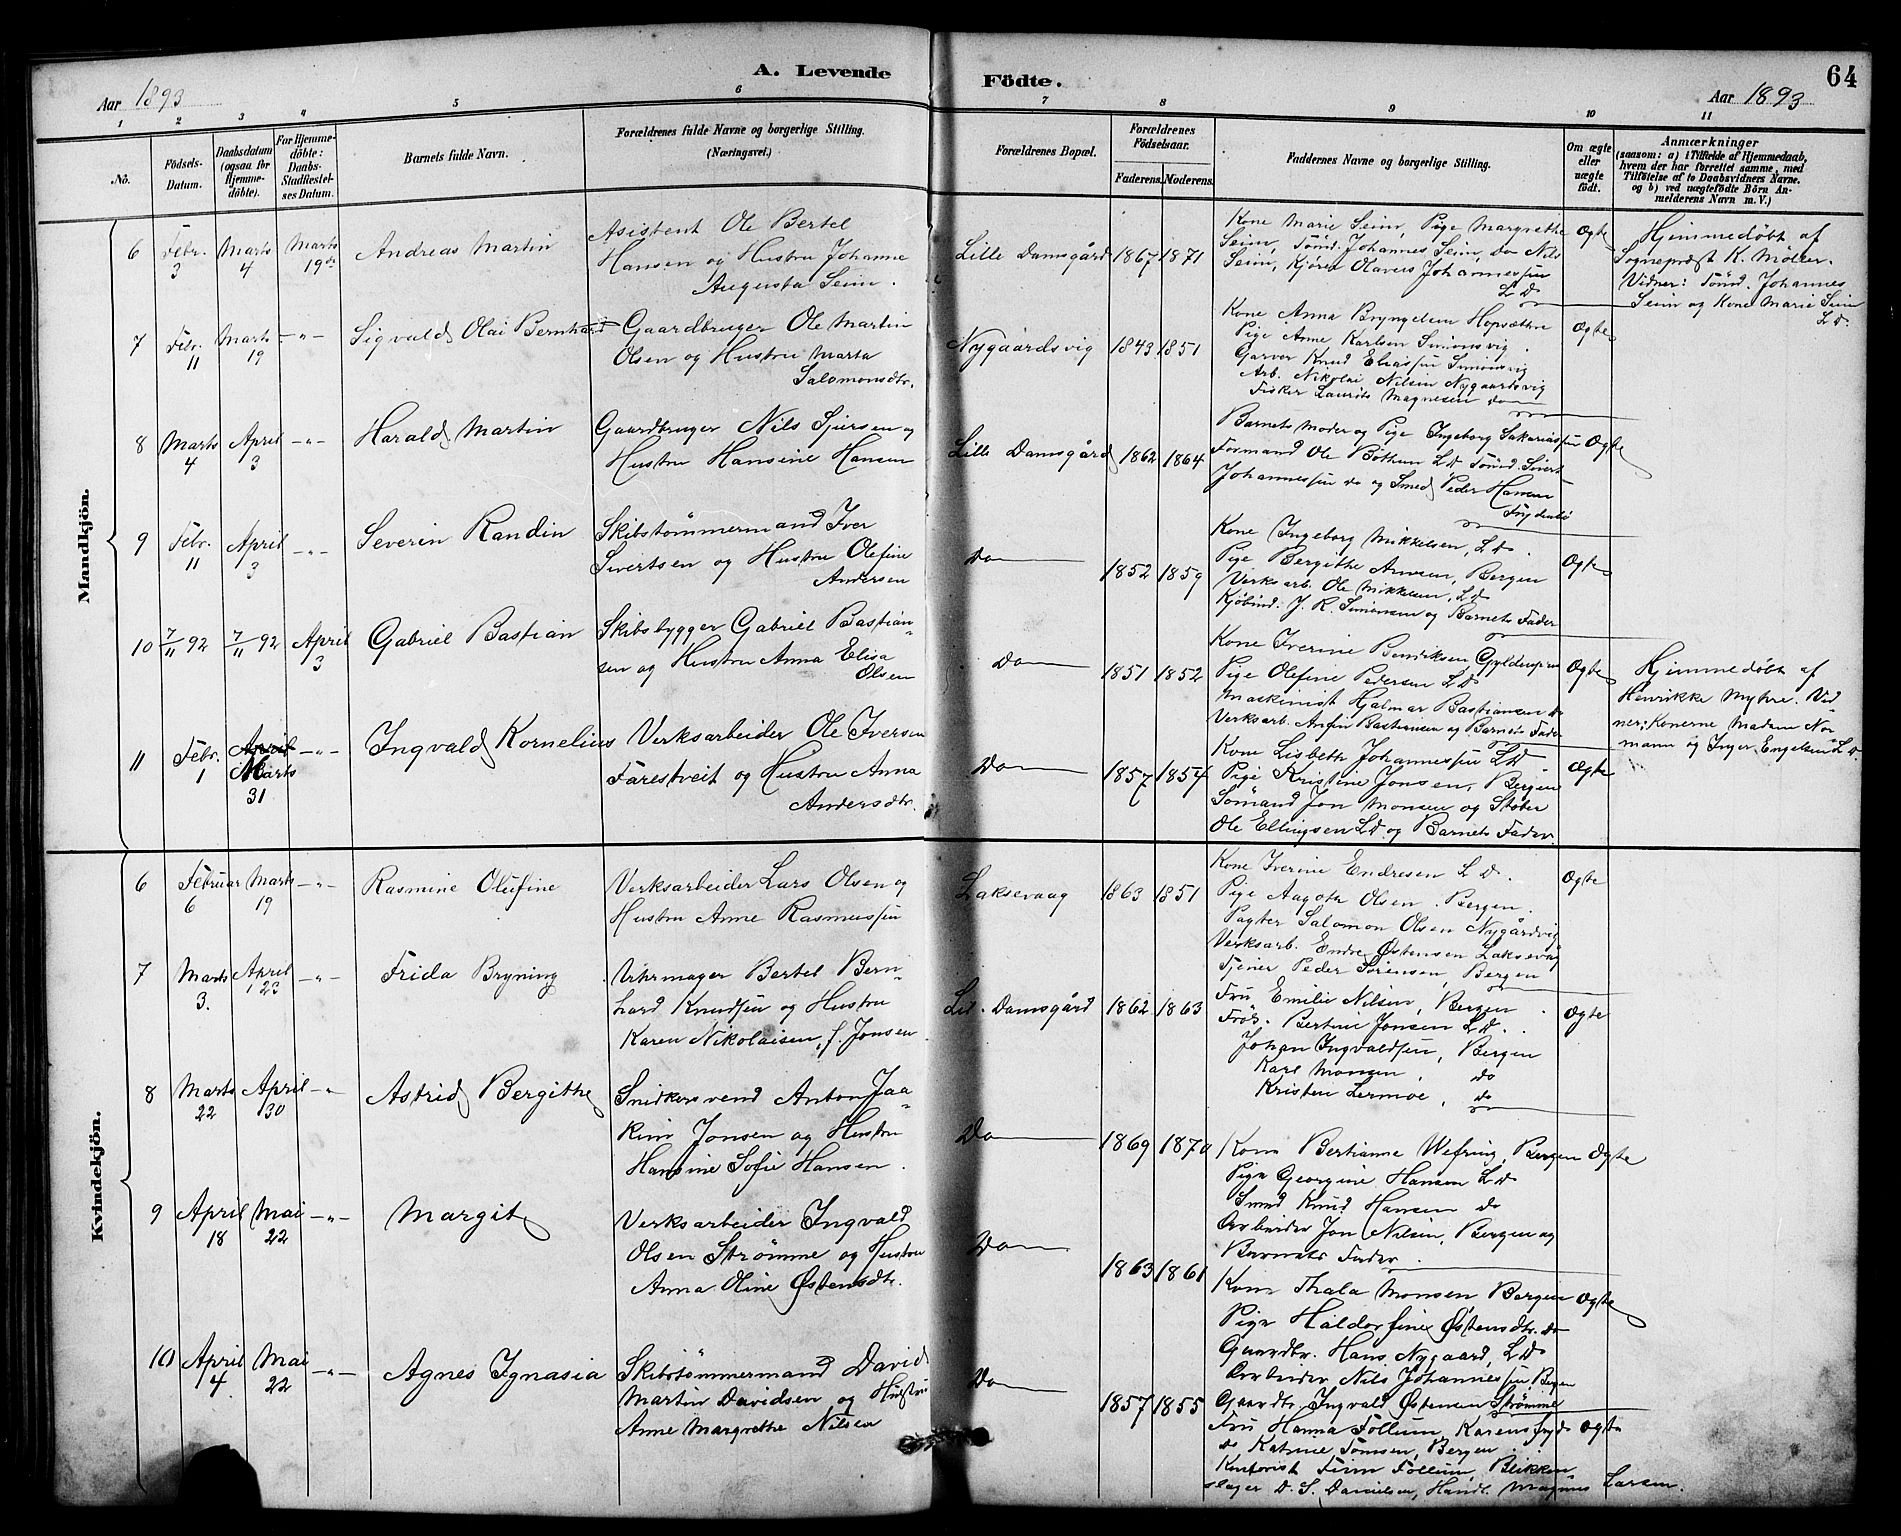 A. Levende Födte.
64
Aar 1893
Aar 1893
1 2 3 4 5 6 7 8 9 10 11
No.
Födsels-Datum.
Daabsdatum (ogsaa for Hjemme-döbte).
For Hjemme-döbte: Daabs-Stadfestel-ses Datum.
Barnets fulde Navn.
Forældrenes fulde Navne og borgerlige Stilling.
(Næringsvei.)
Forældrenes Bopæl.
Forældrenes Födselsaar.
Faderens. Moderens.
Faddernes Navne og borgerlige Stilling.
Om ægte eller uægte födt.
Anmærkninger
(saasom: a) i Tilfælde af Hjemmedaab,
hvem der har forrettet samme, med
Tilföielse af to Daabsvidners Navne.
og b) ved uægtefödte Börn An-
melderens Navn m. V.)
Mandkjön.
6 Febr. 3 Marts 4 Marts 19de Andreas Martin
Asistent Ole Bertel
Hansen og Hustru Johanne
Augusta Seim.
Lille Damsgård 1867 1871
Kone Marie Seim, Pige Margrethe
Seim, Tömd. Johannes Seim, do Nils
Seim, Kjörer Olavus Johannessen
L D
Ogte
Hjemmedøbt af
Sognepræst K. Møller.
Vidner: Tömd. Johannes
Seim og Kone Marie Seim
L D.
7 Febr. 11 Marts 19 - " - Sigvald Olai Bernhard
Gaardbruger Ole Martin
Olsen og Hustru Marta
Salomonsdtr.
Nygaardsvig 1843 1851
Kone Anna Bryngelsen Hopsættre
Pige Anne Karlsen Simonsvig
Garver Knud Eliassen Simonsvig
Arb. Nikolai Nilsen Nygaardsvig
Fisker Laurits Magnesen do
Ogte
8 Marts 4 April 3 - " - Harald Martin
Gaardbruger Nils Sjursen og
Hustru Hansine Hansen
Lille Damsgård 1862 1864
Barnets moder og Pige Ingeborg Sakariassen
Formand Ole Bøthun L D Tömd. Sivert
Johannessen do og Smed Peder Hansen
Frydenbö
Ogte
9 Febr. 11 April 3 - " - Severin Randin
Skibstømmermand Iver
Sivertsen og Hustru Olefine
Andersen
Do 1852 1859
Kone Ingeborg Mikkelsen, L D.
Pige Bergithe Arnesen, Bergen
Verksarb. Ole Mikkelsen, L D
Kjøbmd. J. R. Simonsen og Barnets Fader
Ogte
10 7/11 92 7/11 92 April 3 Gabriel Bastian
Skibsbygger Gabriel Bastian-
sen og Hustru Anna Elisa
Olsen
Do 1851 1852
Kone Iverine Bendiksen
Pige Olefine Pedersen L D
Maskinist Hjalmar Bastiansen do
Verksarb. Anfin Bastiansen og Barnets Fader
Ogte
Hjemmedøbt af
Henrikke Myhre. Vid-
ner: Konerne Madam Nor-
mann og Inger Engelsen L D.
11 Febr. 1 April Marts 31 - " - Ingvald Kornelius
Verksarbeider Ole Iversen
Farestveit og Hustru Anna
Andersdtr.
Do 1857 1854
Kone Lisbeth Johannessen L D
Pige Kristine Jonsen, Bergen
Sømand Jon Monsen og Støber
Ole Ellingsen L D. og Barnets Fader
Ogte
Kvindekjön.
6 Februar 6 Marts 19 - " - Rasmine Olufine
Verksarbeider Lars Olsen og
Hustru Anne Rasmussen
Laksevaag 1863 1851
Kone Iverine Endresen L D.
Pige Aagote Olsen. Bergen.
Pagter Salomon Olsen Nygårdvig
Verksarb. Endre Østensen Laksevåg
Tjener Peder Sørensen, Bergen
Ogte
7 Marts 3. April 23 - " - Frida Bryning
Uhrmager Bertel Bern-
hard Knudsen og Hustru
Karen Nikolaisen, f. Jonsen
Lil. Damsgård 1862 1863
Fru Emilie Nilsen, Bergen
Frök. Bertine Jonsen L D.
Johan Ingvaldsen, Bergen
Karl Monsen, do
Kristen Lermoe, do
Ogte
8 Marts 22 April 30 - " - Astrid Bergithe
Snidkersvend Anton Joa-
kim Jonsen og Hustru
Hansine Sofie Hansen.
Do 1869 1870
Kone Bertianne Wefring, Bergen
Pige Georgine Hansen L D
Smed Knud Hansen do
Arbeider Jon Nilsen, Bergen og
Barnets Fader.
Ogte
9 April 18 Mai 22 - " - Margit
Verksarbeider Ingvald
Olsen Strømme og Hustru
Anna Oline Østensdtr.
Do 1863 1861
Kone Thala Monsen Bergen
Pige Haldorfine Østensdtr. do
Gaardbr. Hans Nygaard, L D
Arbeider Nils Johannessen Bergen
Gaardbr. Ingvald Østensen Strømme
Ogte
10 April 4 Mai 22 - " - Agnes Ignasia
Skibstömmermand David
Martin Davidsen og Hustru
Anne Margrethe Nilsen
Do 1857 1855
Fru Hanna Follum, Karensfryd
do Katrine Tomsen, Bergen
Kontorist Finn Follum, Blikken-
slager D. S. Danielsen, Handl. Magnus Larsen.
Ogte